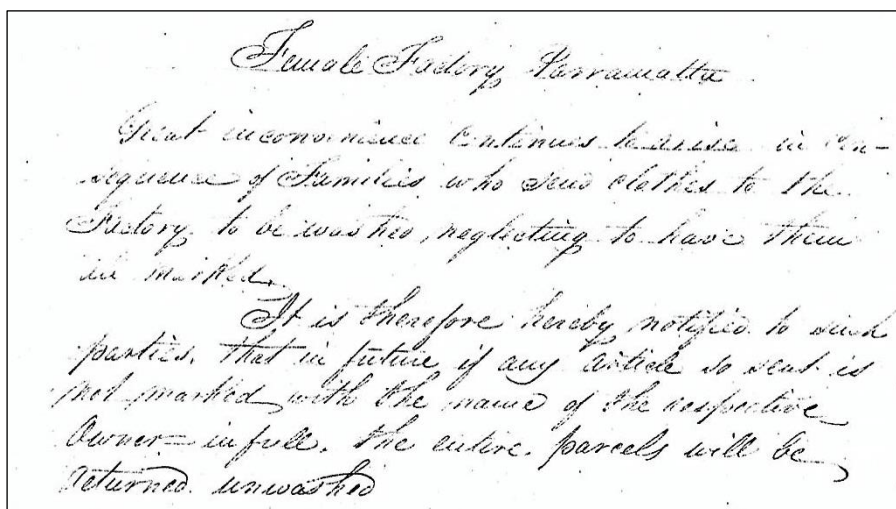 Female Factory Parramatta
Great inconvenience continues to arise in con-
sequence of Families who send clothes to the
Factory to be washed, neglecting to have them
marked.
It is therefore hereby notified to such
parties, that in future if any article so sent is
not marked with the name of the respective
Owner in full, the entire parcels will be
returned unwashed